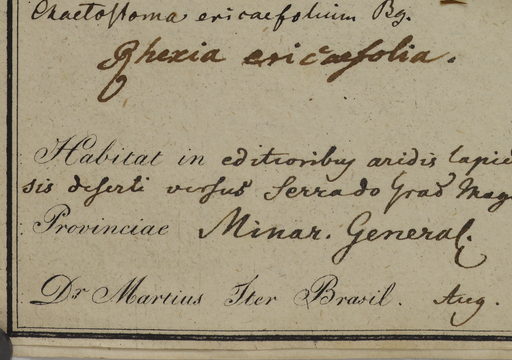 Chaetostoma ericaefolium Bg.
Rhexia ericaefolia.
Habitat in editioribus aridis lapid
sis deserti versus Serrado Grad Mag
Provinciae Minar. General.
Dr Martius Iter Brasil. Aug.